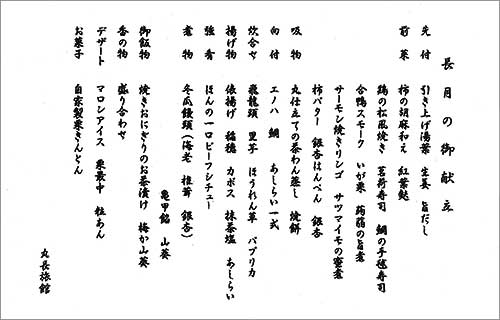 長月の御献立
先付 引き上げ湯葉 生姜 旨だし
前菜 柿の胡麻和え 紅葉麩
鶏の松風焼き 茗荷寿司 鯛の手毬寿司
合鴨スモーク いが栗 蒟蒻の旨煮
サーモン焼きリンゴ サツマイモの蜜煮
柿バター 銀杏はんぺん 銀杏
吸物 丸仕立ての茶わん蒸し 焼餅
向付 エノハ 鯛 あしらい一式
炊合せ 飛龍頭 里芋 ほうれん草 パプリカ
揚げ物 俵揚げ 稲穂 カボス 抹茶塩 あしらい
強肴 ほんの一口ビーフシチュー
煮物 冬瓜饅頭(海老 椎茸 銀杏)
亀甲餡 山葵
御飯物 焼きおにぎりのお茶漬け 梅か山葵
香の物 盛り合わせ
デザート マロンアイス 栗最中 粒あん
お菓子 自家製栗きんとん
丸長旅館